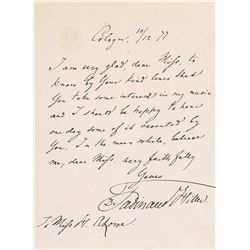 Cologne, 10/12 77
I am very glad dear Miss, to
know by Your kind lines that
You take some interest in my music
and I should be happy to hear
one day some of it executed by
You. In the mean while, believe
me, dear Miss, very faithfully
Yours
Ferdinand Hiller
To Miss H.